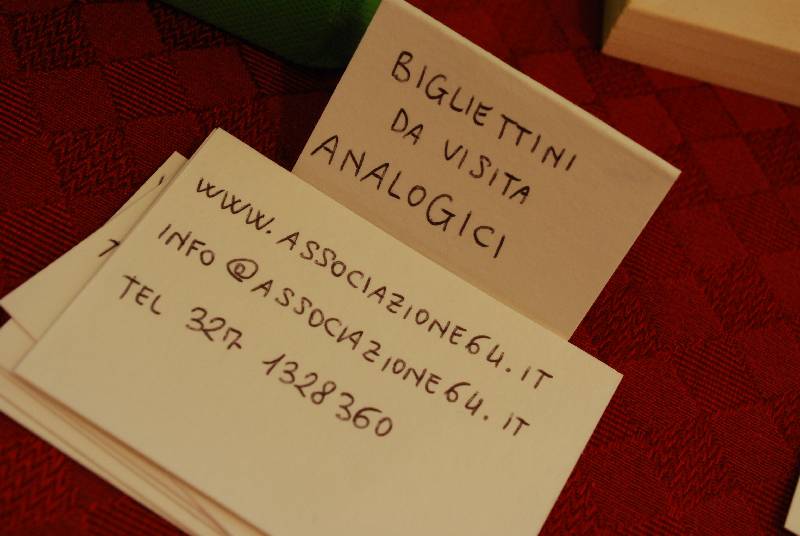 BIGLIETTINI
DA VISITA
ANALOGICI
WWW. ASSOCIAZIONE64. IT
INFO @ASSOCIAZIONE64. IT
TEL 327 1328360